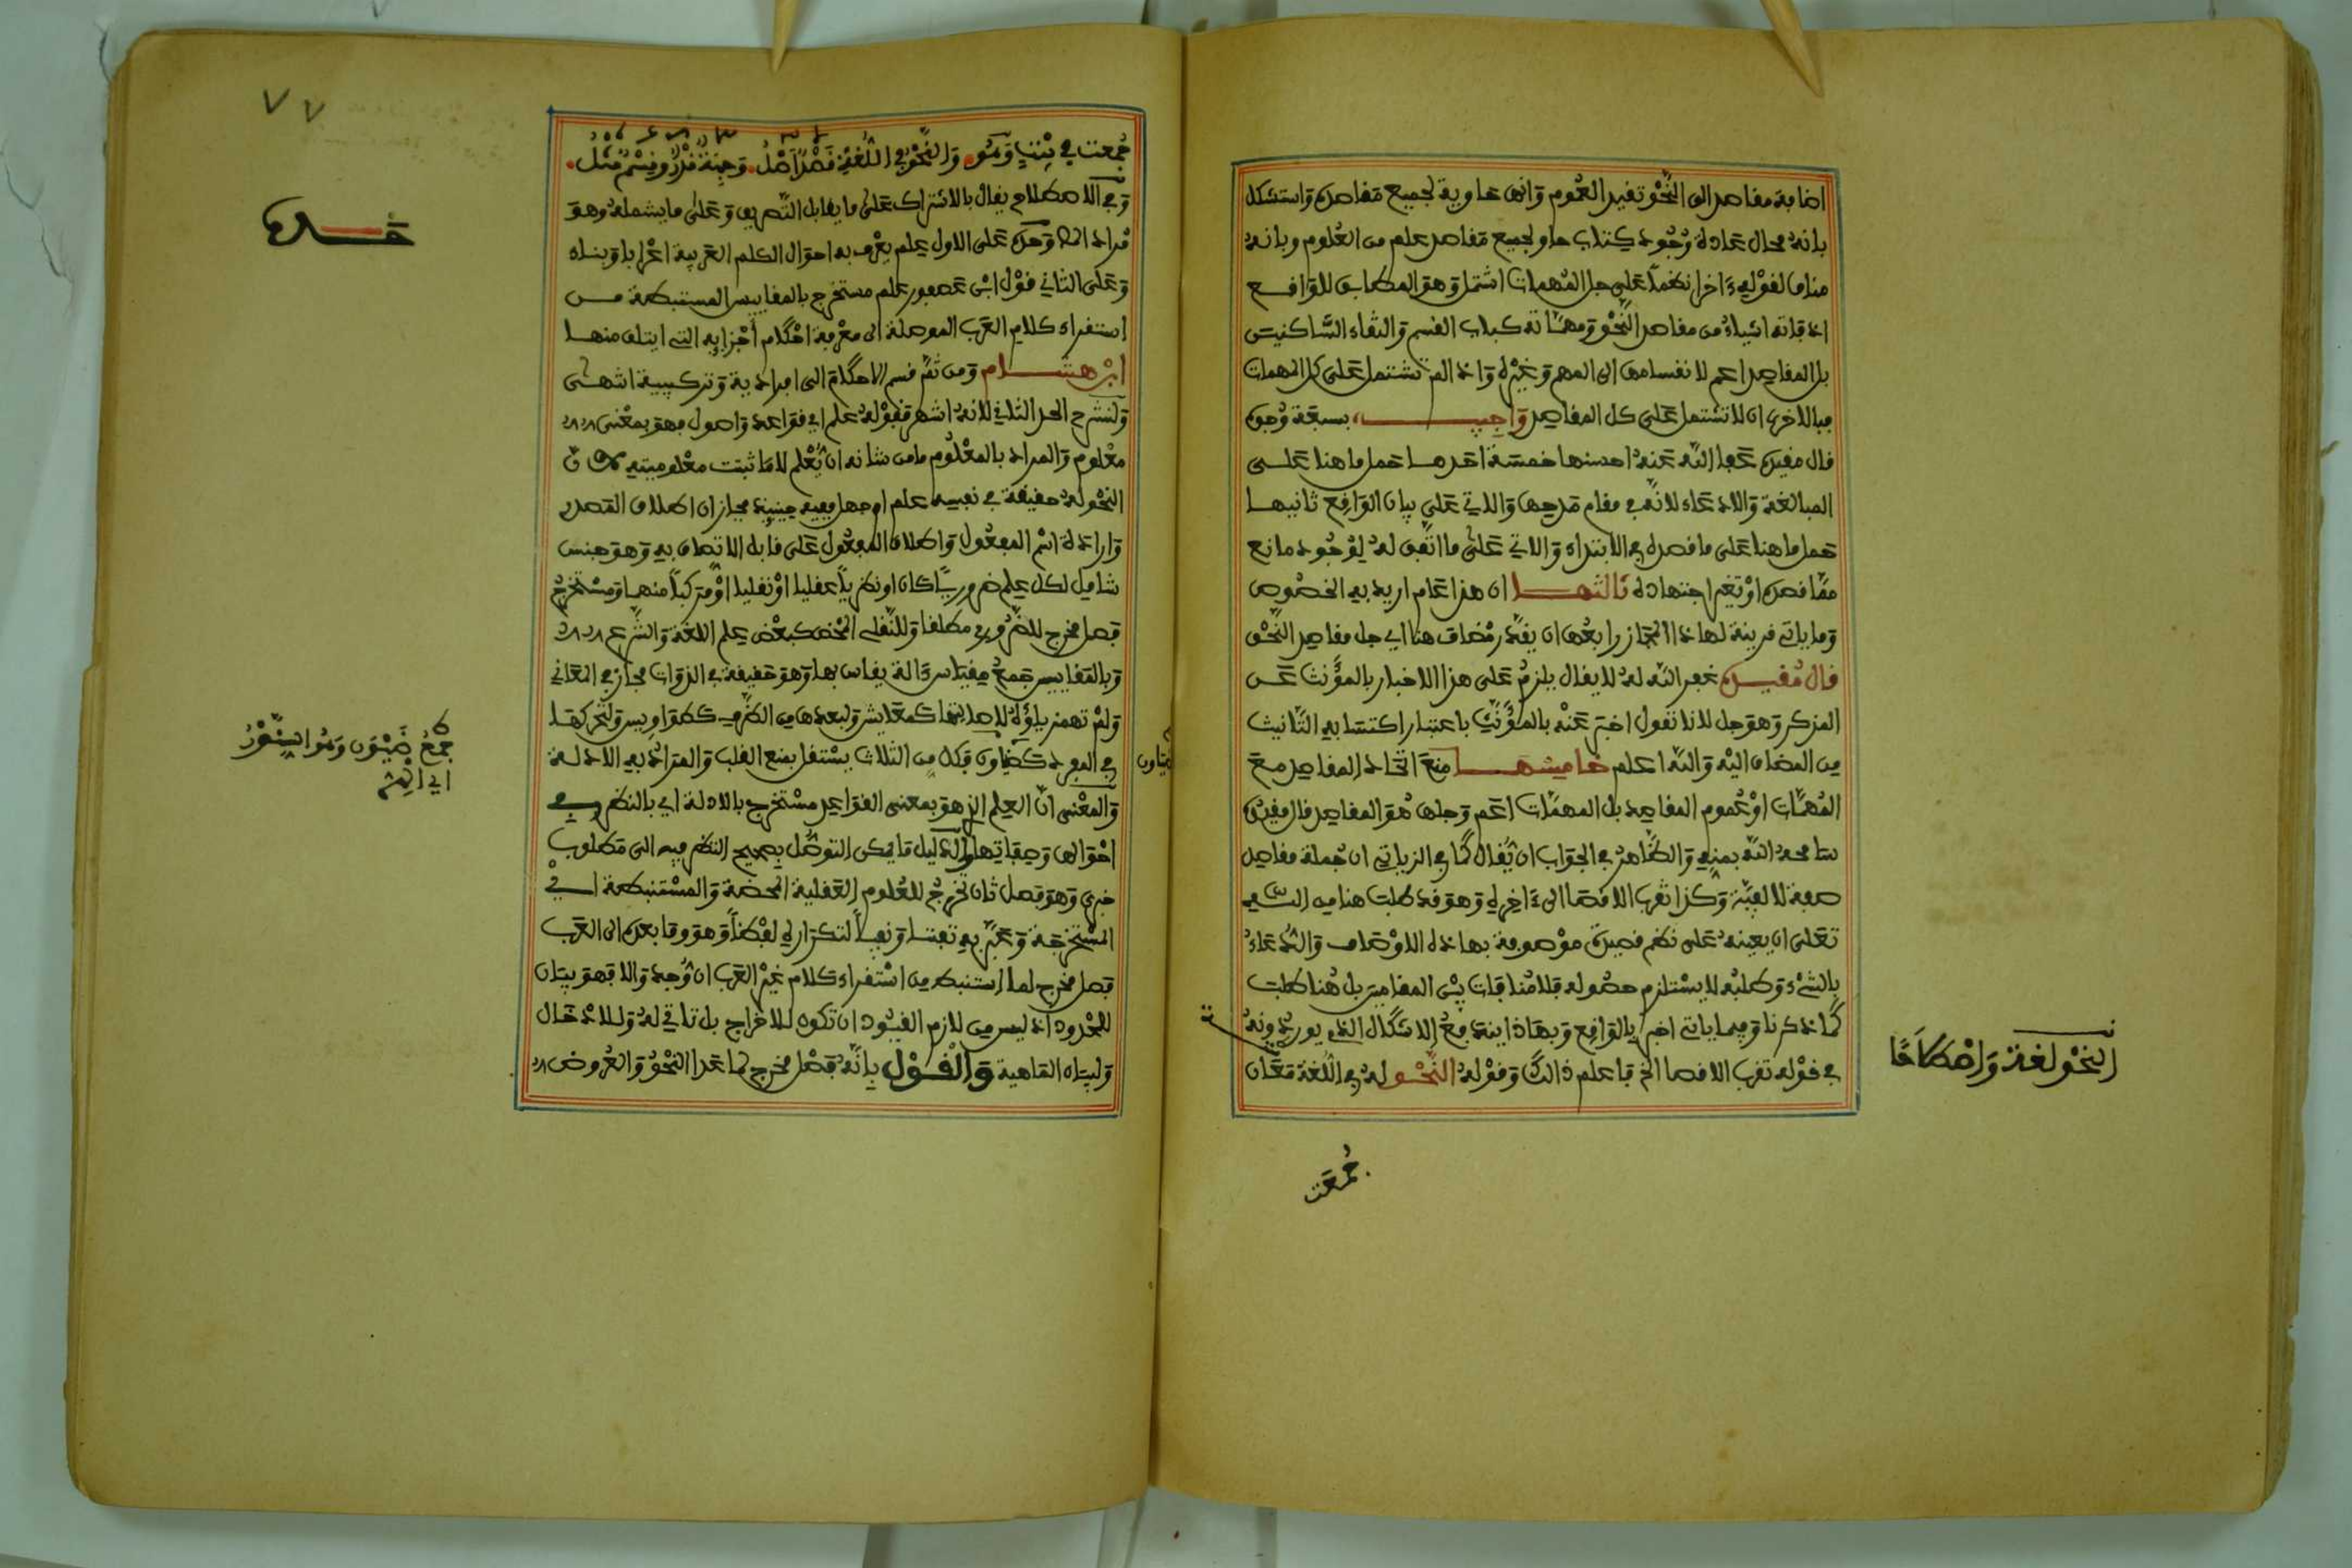 اضافة مقاصد الى النَّحْو تفيد العُموم وَانها حاوية لجميع مَقاصده وَاستشكل
بانهُ محال عَادة وُجُود كِتاب حاوٍ لجميع مَقاصد علم من العُلوم وبانهُ
مناف لقوْلهِ ءَاخرا نظمًا عَلى جل المُهمات اشتمل وَهوَ المطابق للوَاقع
اذ فاته اشياءُ من مقاصد النَّحْو وَمهمَّاته كباب القسم وَالتقاء السَّاكنين
بل المقاصد اعم لانقسامها الى المهم وَغيْره وَاذا لم تشتمل عَلى كل المهمات
فبالاحرى ان لا تشتمل عَلى كل المقاصد وَاجيب بسبعَة وُجوه
قال مقيده عَفا اللَّه عَنهُ احسنها خمسَة احَدها حَمل ما هنا عَلى
المبالغة وَالادعَاء لانهُ في مقام مَدحها وَالاتي عَلى بيان الوَاقع ثانيها
حَمل ما هنا عَلى ما قصد في الابتداء وَالاتي عَلى ما اتفق لهُ لوُجُود مانع
ممَّا قصده اوْ تغير اجتهاده ثالثها ان هذا عَام اريد بهِ الخصُوص
وَما ياتي قرينة لهاذا المجَاز رابعُها ان يقدَّر مُضاف هنا اي جل مقاصد النَّحْو
قال مُقيده غفر اللَّه لهُ لا يقال يلزمُ عَلى هذا الاخبار بالمؤنث عَن
المذكر وَهوَ جل لانا نقول اخبر عَنْهُ بالمؤنَّث باعتبار اكتسابهِ التَّانيث
مِن المضاف اليْه وَاللَّه اعلم خامسها منعَ اتحاد المقاصد معَ
المُهمَّات اوْ عُموم المقاصد بل المهمَّات اعَم وَجلها هُوَ المقاصد قال مقيدُه
سَامحهُ اللَّه بمنهِ وَالظَّاهرُ في الجوَاب ان يُقال كما في الزياتي ان جُملة مقاصد
صفة لالفيَّة وَكذا تقرب الاقصَا الى ءَاخره وَهوَ قد طلب هنا مِن اللَّه
تعَلى ان يعينهُ عَلى نظم قصيدة موْصوفة بهاذه الاوْصَاف وَالدُّعَاءُ
بالشيْء وَطلبُه لا يسْتلزم حصُوله فلا مُنافات بيْن المقامين بل هُنا طلب
كمَا ذكرنا وَفيما ياتي اخبر بالوَاقع وَبهَاذا ينْدفعُ الاشكال الذي يوردُونهُ
في قوْله تقرب الاقصا الخ فاعلم ذالك وَقوْلهُ النَّحْو لهُ في اللُّغة مَعَان
جُمعَت
النَّحْو لغة وَاصْطلاحًا
٧٧
جُمعت في بيْتٍ وَهُوَ وَالنَّحْو في اللُّغةِ قَصْدٌ أَصْلُ وَجِهَةٌ قَدْرٌ وَقِسْمٌ مِثْلُ
وَفي الاصطلاح يقال بالاشتراك عَلى ما يقابل التَّصريف وَعَلى ما يشملهُ وهوَ
مُراد النا وَحده عَلى الاول عِلم يعْرف به احوَال الكلم العَربية اعْرابا وَبناء
وَعَلى الثاني قوْل ابْن عَصفور عِلم مستخرج بالمقاييس المستنبطة مِن
استقراء كلام العَرب الموصلة الى معْرفة احْكام أجْزائه التي ايتلف منها
ابن هشام وَمن ثَمَّ قسم الاحكام الى افرادية وَتركيبية انتهى
وَلنشرح الحد الثاني لانهُ اشهر فقوْلهُ علم اي قوَاعد وَاصول فهوَ بمعْنى
معْلوم وَالمراد بالمعْلُوم ما من شانه ان يُعْلم لا مَا ثبتت معْلوميته لان
النحْو لهُ حقيقة في نفسِه علم اوْ جهل ففيه حينئذ مجازان اطلاق المَصدر
وَارَادة اسْم المفعُول وَاطلاق المفعُول عَلى قابل الاتصاف بهِ وَهوَ جنس
شامِل لكل عِلم ضروريًّا كان او نظريًا عقليا اوْ نقليا اوْ مركبًا منهما وَمسْتخرَج
فصل مخرج للضَّرُوري مطلقا وَللنَّقلي المحْض كبعْض عِلم اللغَة وَالشَّرع
وَبالمقاييس جَمعُ مِقياس ءَالة يقاس بها وَهوَ حَقيقة في الذوَات مجاز في المعَاني
وَلمْ تهمز ياؤهُ لاصالتها كمعَايش وَلبعدها مِن الطَّرف كطوَاويس وَلتحركهَا
في المفرد كضيَاون فكل مِن الثلاث يسْتقل بمنع القلب وَالمرَادُ بهِ الادلة
وَالمعْنى انَّ العِلم الذي هوَ بمعنى القوَاعد مسْتخرج بالادلة اي بالنظر في
احْوَالها وَصِفاتها وَالدَّليل مَا يمكن التوصُّل بصحيح النظر فيه الى مَطلوب
خبري وَهوَ فصل ثان تخرج للعُلوم العَقلية المحضَة وَالمسْتنبطَة اي
المسْتخرَجة وَعَبَّر بهِ تفننا وَنفيًا لتكرار لفْظ وَهوَ وَما بعده الى العَرب
فصل مخرج لما استنبط مِن استقراء كلام غيْر العَرب ان وُجد وَالا فهوَ بيَان
للحُدود اذ ليس مِن لازم القيُود ان تكون للاخراج بل تاتي لهُ وَللادْخَال
وَلبيَان المَاهية وَالْقَوْل بِانَّهُ فصْل مخرج لما عَدا النَّحْوَ وَالعُروض
حَده
ضيَاون
جمْعُ ضَيْوَن وَهُوَ السِّنَّوْرُ
اي الهر